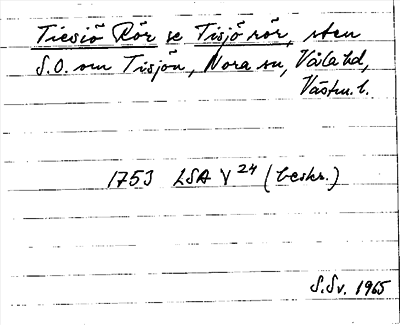 Tiesiö Rör se Tisjö rör, sten
S.O. om Tisjön, Nora sn, Våla hd,
Västm. l.
1753 LSA V 24 (beskr.)
S.Sv. 1965